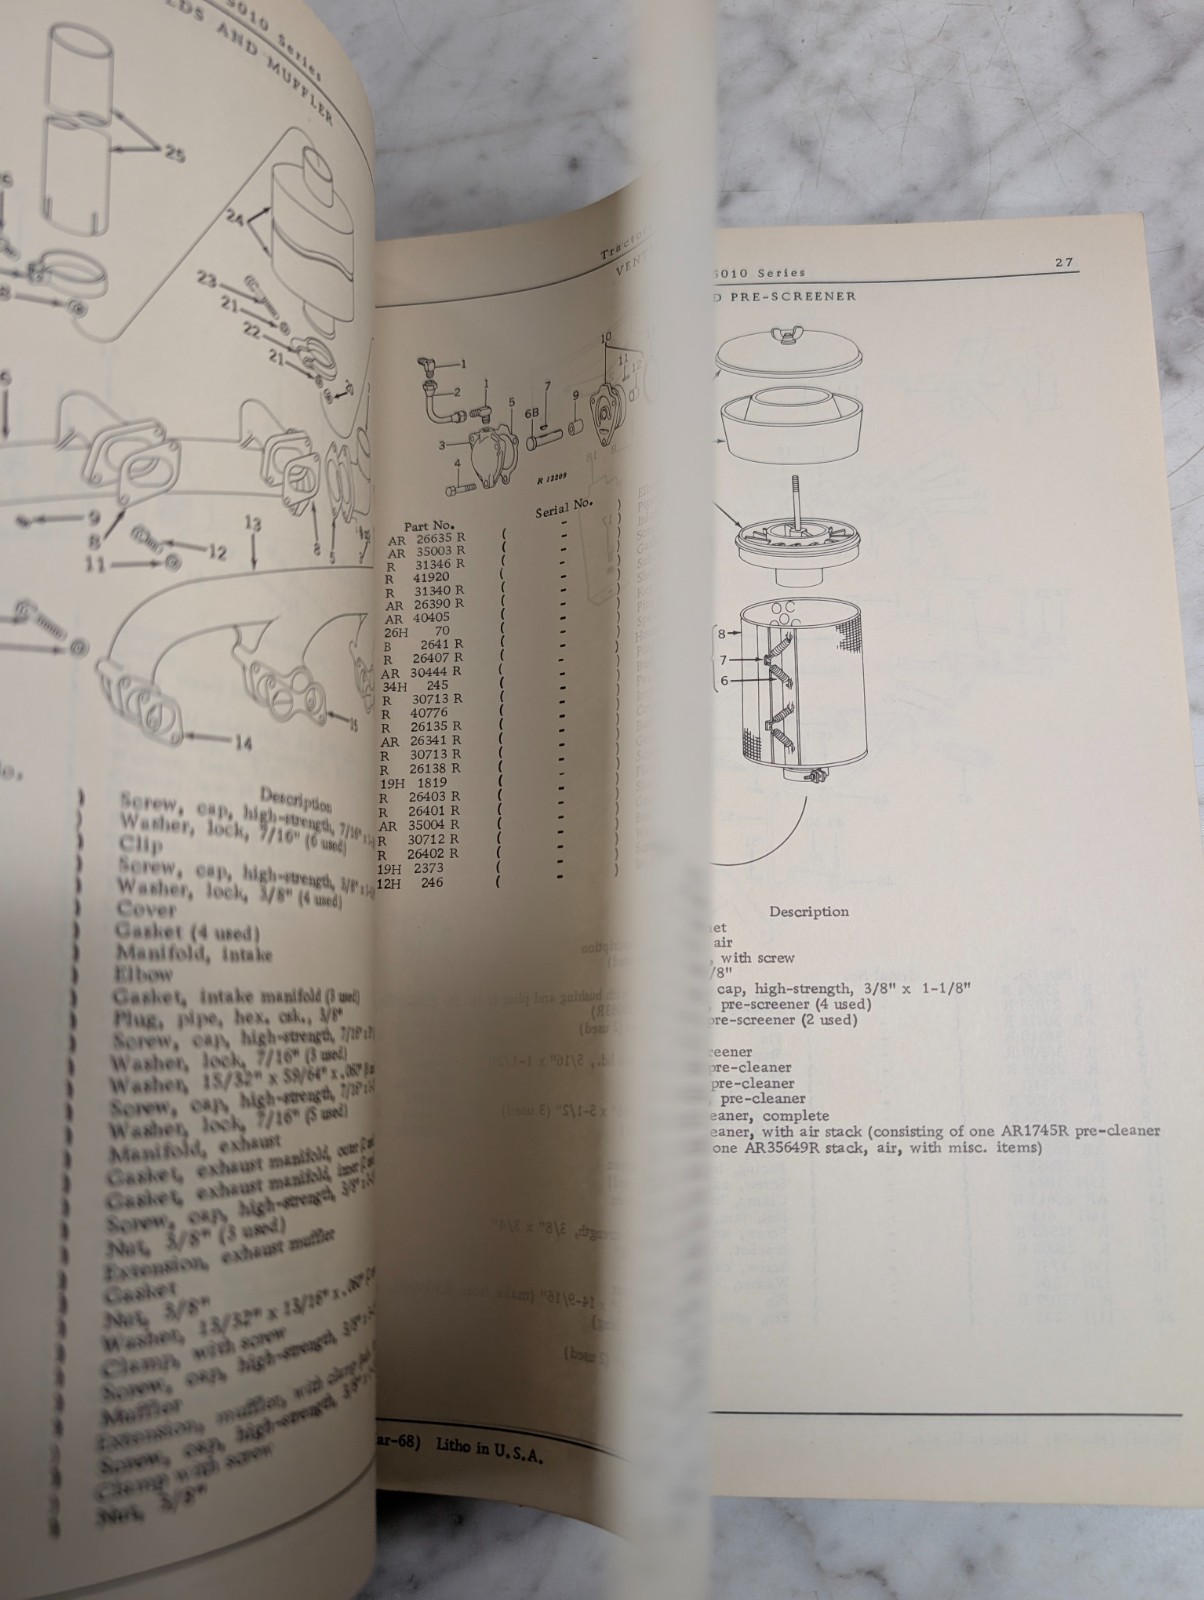 5010 Series
LDS AND MUFFLER
25
24
23
21
22
21
9
8
13
12
11
8
5
15
14
Description
Screw, cap, high-strength, 7/16"
Washer, lock, 7/16" (6 used)
Clip
Screw, cap, high-strength, 3/8"
Washer, lock, 3/8" (4 used)
Cover
Gasket (4 used)
Manifold, intake
Elbow
Gasket, intake manifold (3 used)
Plug, pipe, hex. csk., 3/8"
Screw, cap, high-strength, 7/16"
Washer, lock, 7/16" (3 used)
Washer, 15/32" x 59/64" x .060"
Screw, cap, high-strength, 7/16"
Washer, lock, 7/16" (5 used)
Manifold, exhaust
Gasket, exhaust manifold, outer
Gasket, exhaust manifold, inner
Screw, cap, high-strength, 3/8"
Nut, 3/8" (3 used)
Extension, exhaust muffler
Gasket
Nut, 3/8"
Washer, 13/32" x 13/16" x .060"
Clamp, with screw
Screw, cap, high-strength, 3/8"
Muffler
Extension, muffler, with clamp
Screw, cap, high-strength, 3/8"
Clamp with screw
Nut, 3/8"
Tractor
VENT
1
2
1
3
4
5
6B
7
9
10
11
12
R 12209
Part No. Serial No.
AR 26635 R ( - )
AR 35003 R ( - )
R 31346 R ( - )
R 41920 ( - )
R 31340 R ( - )
AR 26390 R ( - )
AR 40405 ( - )
26H 70 ( - )
B 2641 R ( - )
R 26407 R ( - )
AR 30444 R ( - )
34H 245 ( - )
R 30713 R ( - )
R 40776 ( - )
R 26135 R ( - )
AR 26341 R ( - )
R 30713 R ( - )
R 26138 R ( - )
19H 1819 ( - )
R 26403 R ( - )
R 26401 R ( - )
AR 35004 R ( - )
R 30712 R ( - )
R 26402 R ( - )
19H 2373 ( - )
12H 246 ( - )
ar-68) Litho in U.S.A.
5010 Series 27
D PRE-SCREENER
8
7
6
Description
et
air
, with screw
/8"
cap, high-strength, 3/8" x 1-1/8"
, pre-screener (4 used)
pre-screener (2 used)
reener
pre-cleaner
pre-cleaner
, pre-cleaner
eaner, complete
eaner, with air stack (consisting of one AR1745R pre-cleaner
one AR35649R stack, air, with misc. items)